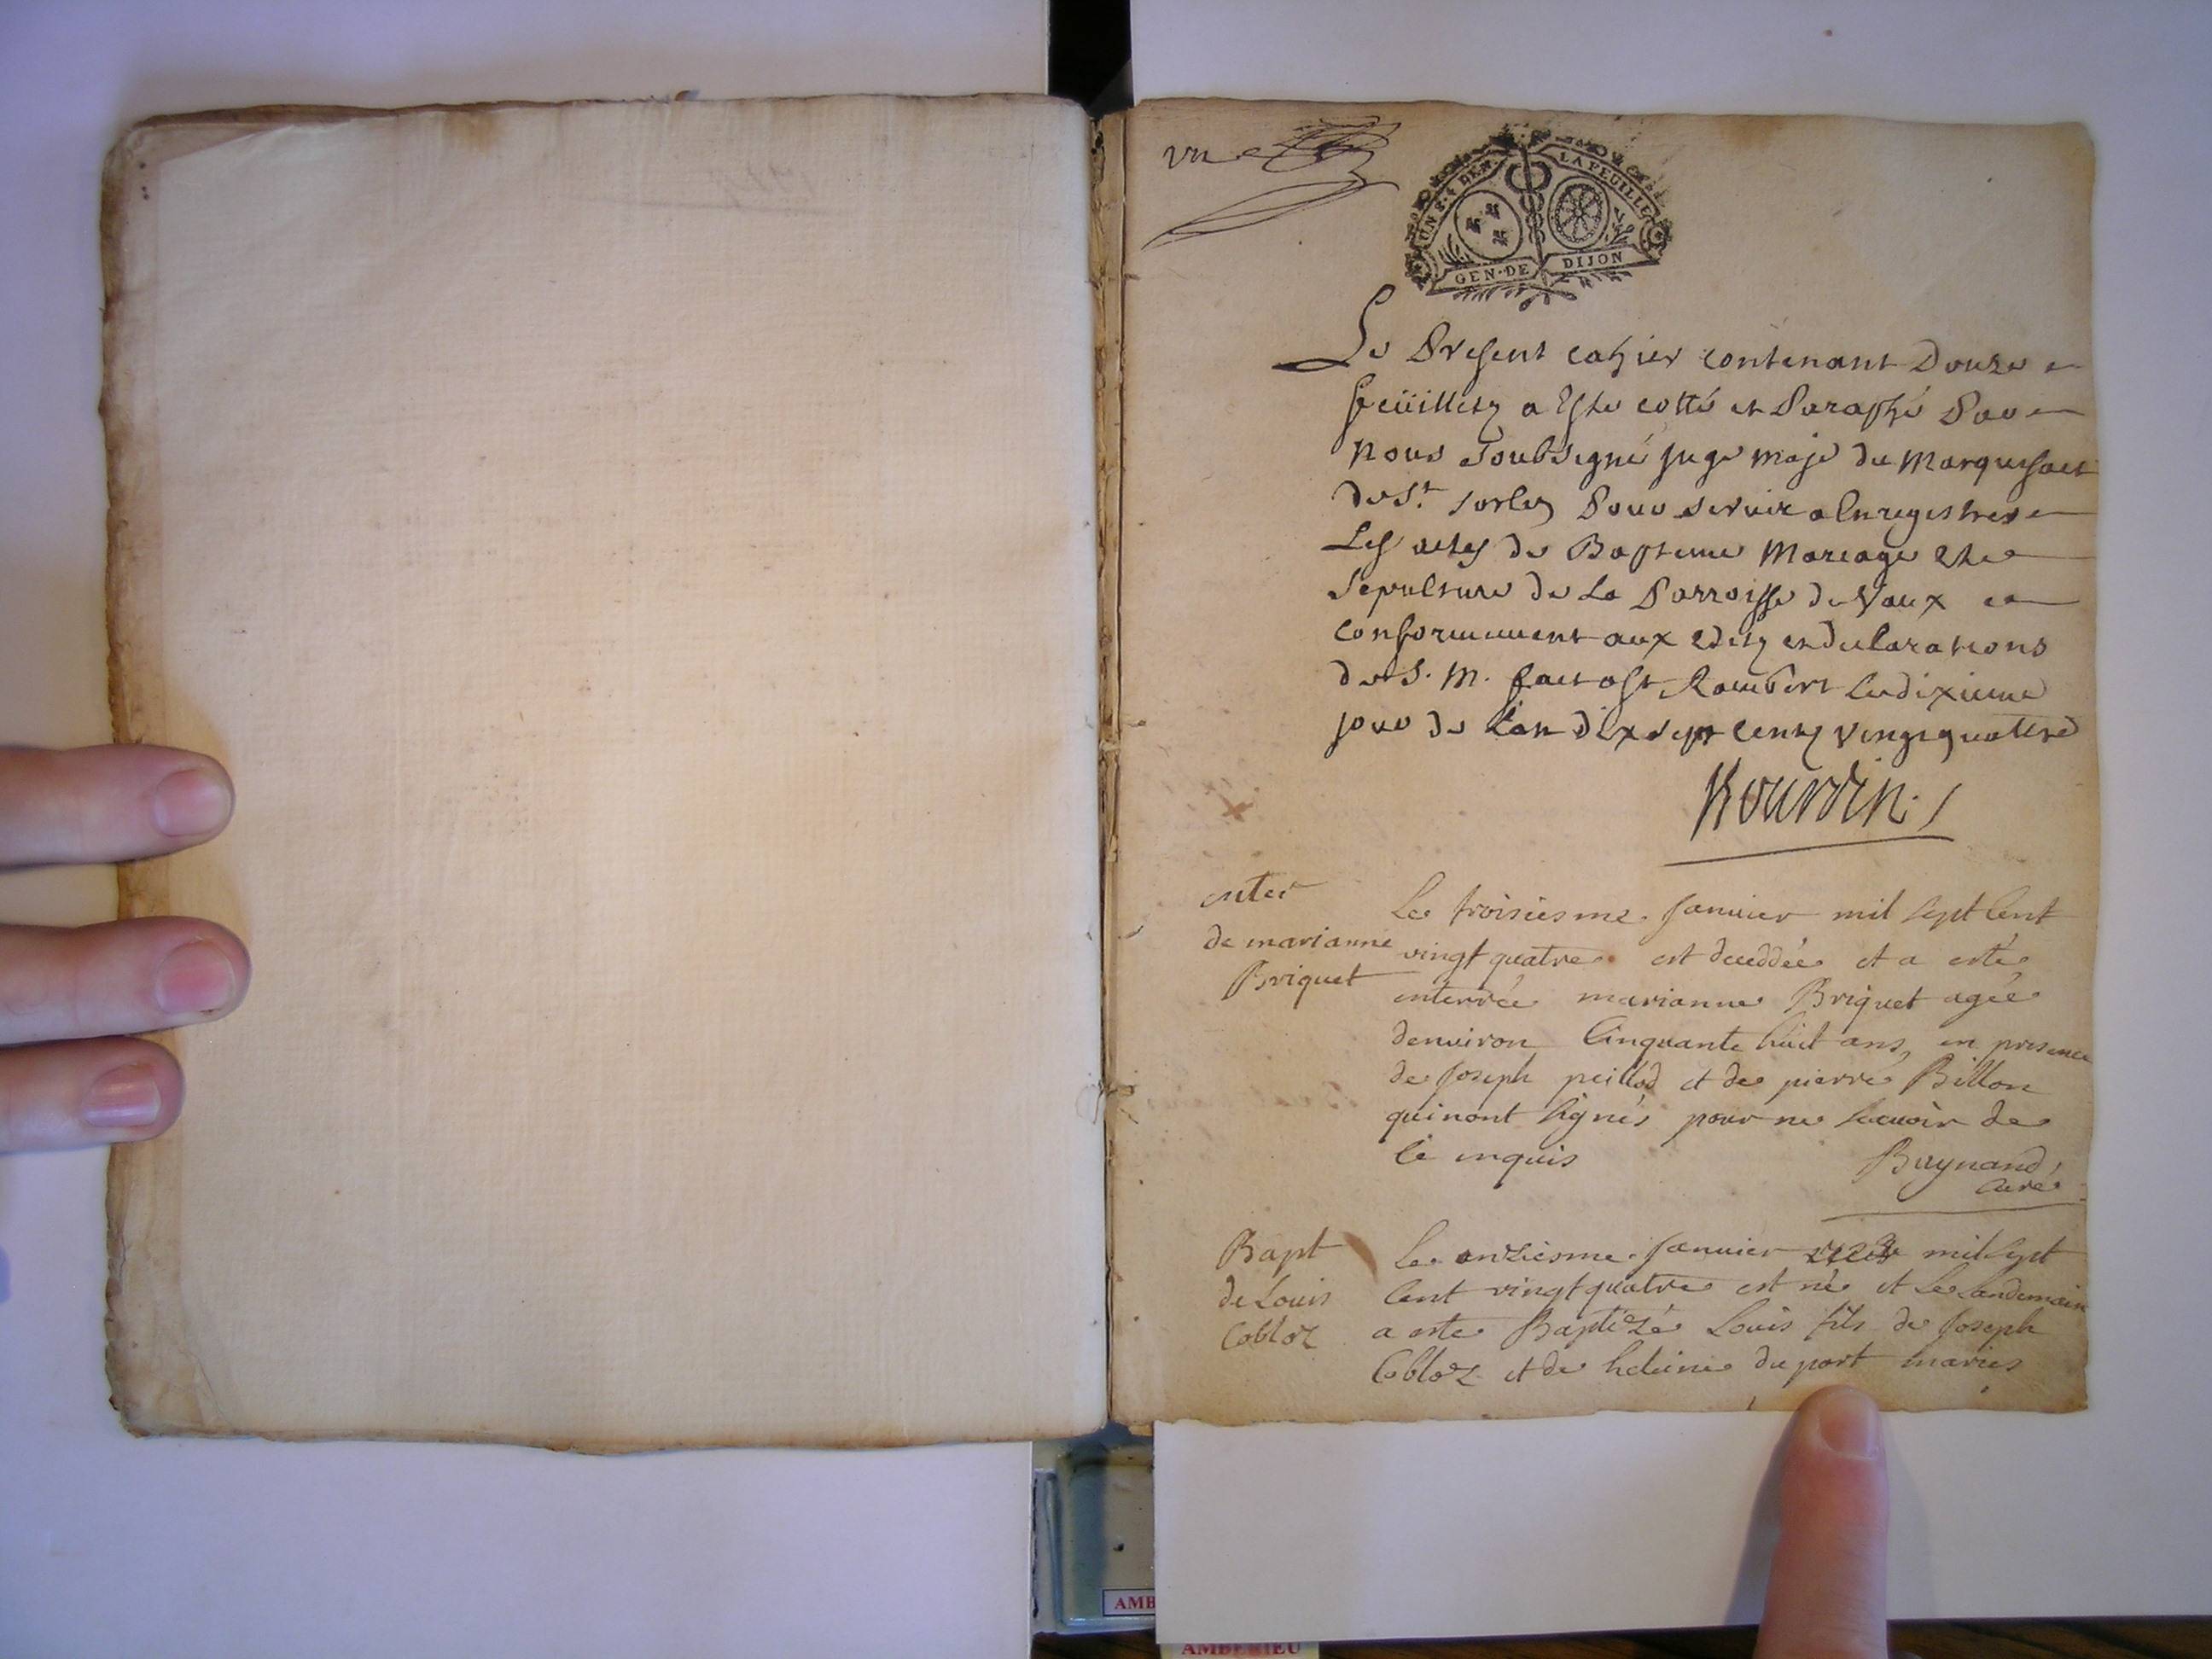 vu
UN S. 4 DEN LA FEUILLE
GEN. DE DIJON
Le Present cahier contenant Douze
feüilletz a Este cotté et Paraphé Par
Nous soubsigné juge maje du Marquisact
de St. Sorlin Pour servir a Enregistrer
Les actes de Bapteme Mariage et
Sepulture de La Parroisse de Vaux
conformement aux edits et declarations
de S. M. fait a St Rambert le dixieme
jour de l'an dix sept centz vingt quattre
enter
de marianne
Briquet
Le troisiesme Janvier mil sept cent
vingt quatre est deceddée et a esté
enterrée marianne Briquet agée
denviron Cinquante huit ans, en presence
de Joseph peillod et de pierre Billon
qui nont signés pour ne scavoir de
ce enquis
Curé
Bapt
de Louis
Cobloz
Le onziesme Janvier mil sept
cent vingt quatre est né et le landemain
a este Baptizé Louis fils de Joseph
Cobloz et de heleine du port mariés
AMB
AMBERIEU